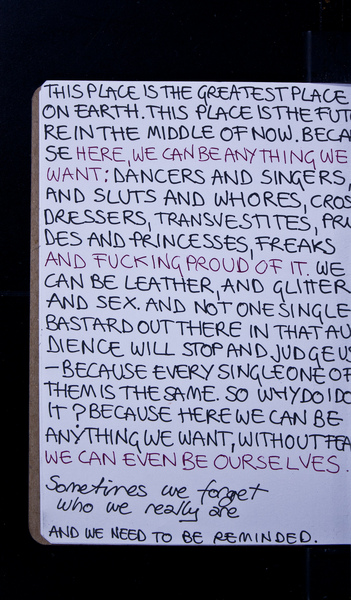 THIS PLACE IS THE GREATEST PLACE
ON EARTH. THIS PLACE IS THE FUTU
RE IN THE MIDDLE OF NOW. BECA
SE HERE, WE CAN BE ANYTHING WE
WANT: DANCERS AND SINGERS,
AND SLUTS AND WHORES, CROS
DRESSERS, TRANSVESTITES, PRU
DES AND PRINCESSES, FREAKS
AND FUCKING PROUD OF IT. WE
CAN BE LEATHER, AND GLITTER
AND SEX. AND NOT ONE SINGLE
BASTARD OUT THERE IN THAT AU
DIENCE WILL STOP AND JUDGE US
–BECAUSE EVERY SINGLE ONE OF
THEM IS THE SAME. SO WHY DO I DO
IT? BECAUSE HERE WE CAN BE
ANYTHING WE WANT, WITHOUT FEA
WE CAN EVEN BE OURSELVES.
Sometimes we forget
who we really are
AND WE NEED TO BE REMINDED.